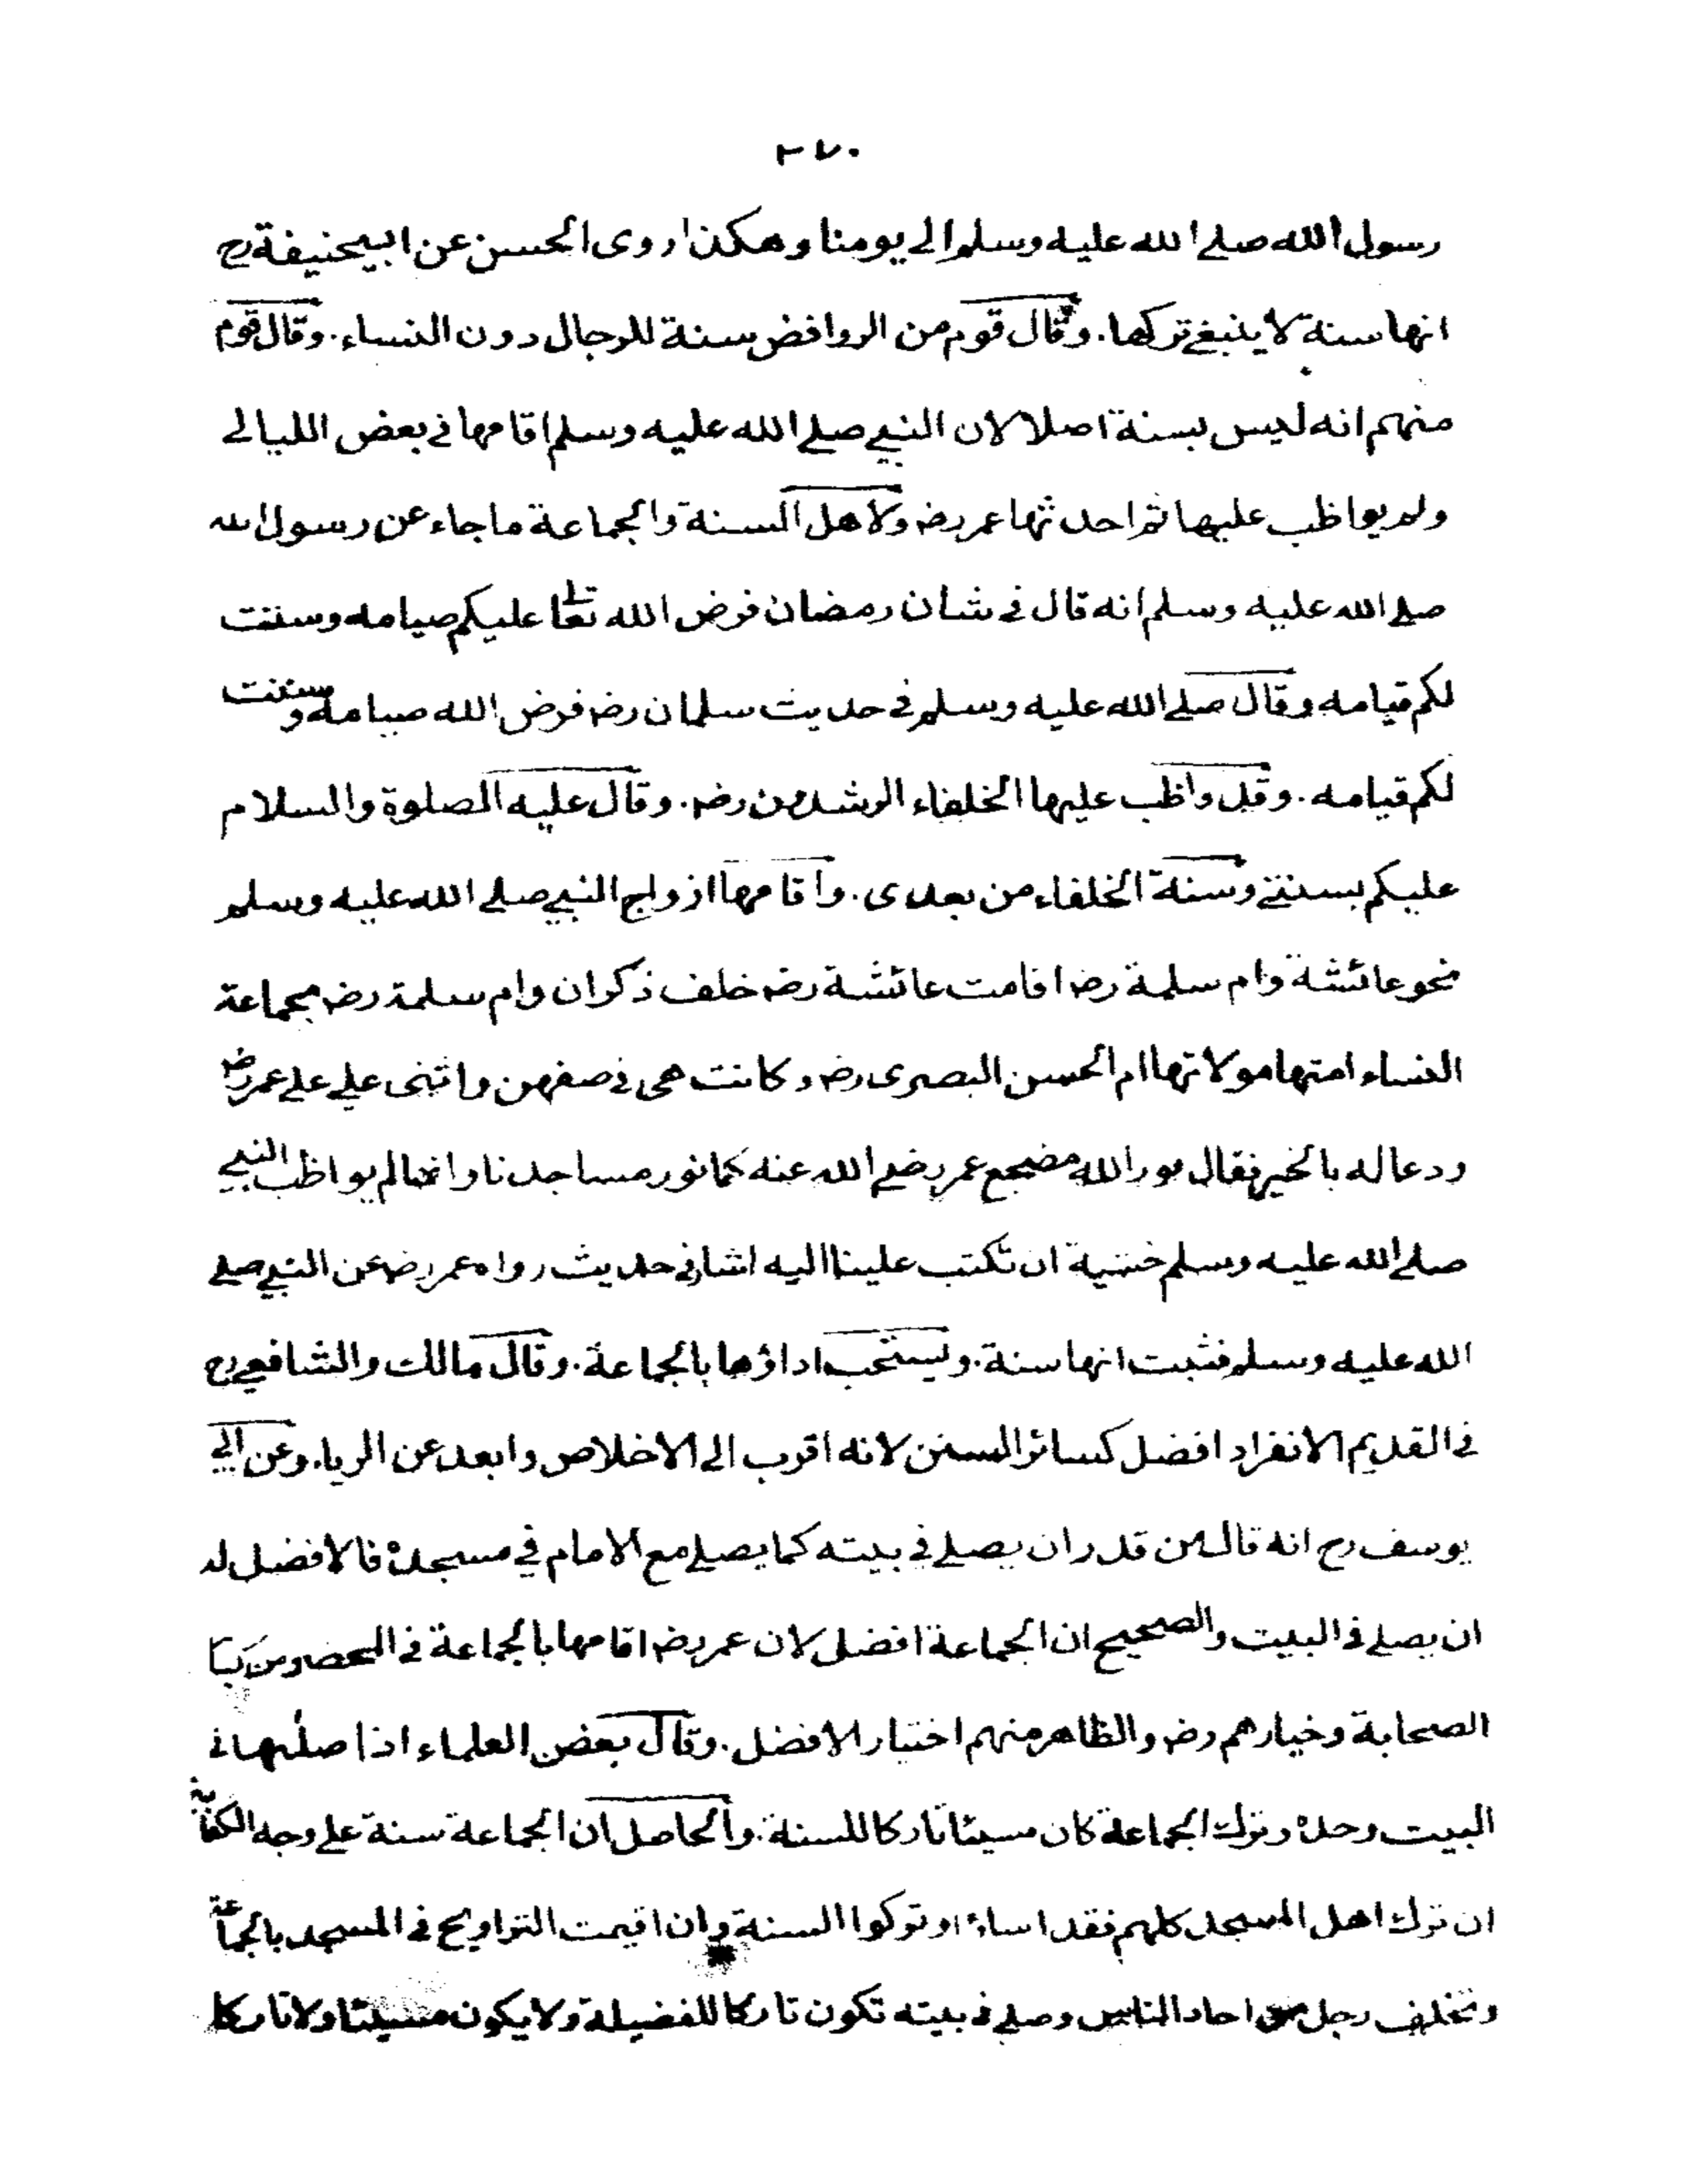 ٢٧٠
رسول الله صلے الله عليه وسلم الى يومنا وهكذا روى الحسن عن ابيحنيفة رح
انها سنة لا ينبغے تركها. وقال قوم من الروافض سنة للرجال دون النساء. وقال قوم
منهم انه ليس بسنة اصلا لان النبي صلے الله عليه وسلم اقامها فى بعض الليالى
ولم يواظب عليها ثم احدثها عمر رضه ولاهل السنة والجماعة ما جاء عن رسول الله
صلے الله عليه وسلم انه قال فى شان رمضان فرض الله تعالى عليكم صيامه وسننت
لكم قيامه وقال صلے الله عليه وسلم فى حديث سلمان رضه فرض الله صيامه وسننت
لكم قيامه. وقد واظب عليها الخلفاء الرشدين رضه. وقال عليه الصلوة والسلام
عليكم بسنتى وسنة الخلفاء من بعدى. واقامها ازواج النبي صلے الله عليه وسلم
نحو عائشة وام سلمة رضه اقامت عائشة رضه خلف ذكوان وام سلمة رضه بجماعة
النساء امتها مولاتها ام الحسن البصرى رضه وكانت هى فى صفهن واثنى علي على عمر رضه
ودعا له بالخير فقال نور الله مضجع عمر رضي الله عنه كما نور مساجدنا وانما لم يواظب النبي
صلے الله عليه وسلم خشية ان تكتب علينا اليه اشار فى حديث رواه عمر رضه عن النبي صلے
الله عليه وسلم فثبت انها سنة. ويستحب اداؤها بالجماعة. وقال مالك والشافعي رح
فى القديم الانفراد افضل كسائر السنن لانه اقرب الى الاخلاص وابعد عن الرياء. وعن ابي
يوسف رح انه قال من قدر ان يصلے فى بيته كما يصلے مع الامام في مسجده فالافضل له
ان يصلے فى البيت والصحيح ان الجماعة افضل لان عمر رضه اقامها بالجماعة فى المحضر من
الصحابة وخيارهم رضه والظاهر منهم اختيار الافضل. وقال بعض العلماء اذا صليها فى
البيت وحده وترك الجماعة كان مسيئا تاركا للسنة. والحاصل ان الجماعة سنة على وجه الكفاية
ان ترك اهل المسجد كلهم فقد اساءوا وتركوا السنة وان اقيمت التراويح فى المسجد بالجماعة
وتخلف رجل من احاد الناس وصلے فى بيته تكون تاركا للفضيلة ولا يكون مسيئا ولا تاركا